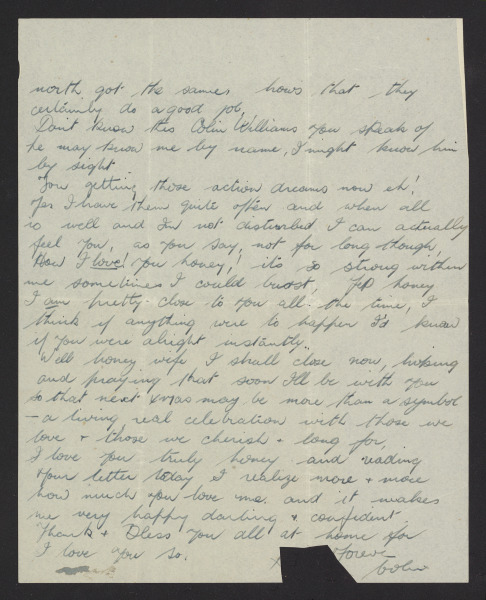 north got the same, hows that they
certainly do a good job,
Don't know this Colin Williams you speak of
he may know me by name, I might know him
by sight.
You getting those action dreams now eh!
Yes I have them quite often and when all
is well and I'm not disturbed I can actually
feel you, as you say, not for long though,
How I love you honey,! it's so strong within
me sometimes I could burst, honey
I am pretty close to you all the time, I
think if anything were to happen I'd know
if you were alright instantly.
Well honey wife I shall close now, hoping
and praying that soon I'll be with you
so that next Xmas may be more than a symbol
- a living real celebration with those we
love + those we cherish + long for,
I love you truly honey and reading
your letter today I realize more + more
how much you love me and it makes
me very happy darling + confident.
Thanks + Bless you all at home for
I love you so.
Forever
Colin